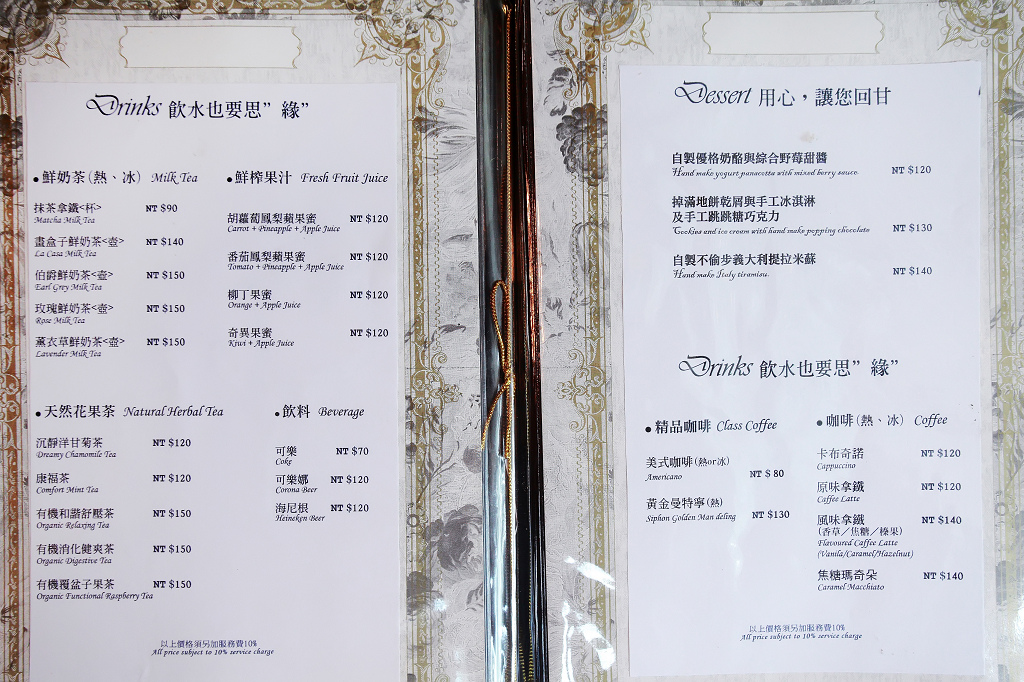 Drinks 飲水也要思”緣”
•鮮奶茶(熱、冰) Milk Tea
抹茶拿鐵<杯> NT $90
Matcha Milk Tea
畫盒子鮮奶茶<壺> NT $140
La Casa Milk Tea
伯爵鮮奶茶<壺> NT $150
Earl Grey Milk Tea
玫瑰鮮奶茶<壺> NT $150
Rose Milk Tea
薰衣草鮮奶茶<壺> NT $150
Lavender Milk Tea
•鮮榨果汁 Fresh Fruit Juice
胡蘿蔔鳳梨蘋果蜜 NT $120
Carrot + Pineapple + Apple Juice
番茄鳳梨蘋果蜜 NT $120
Tomato + Pineapple + Apple Juice
柳丁果蜜 NT $120
Orange + Apple Juice
奇異果蜜 NT $120
Kiwi + Apple Juice
•天然花果茶 Natural Herbal Tea
沉靜洋甘菊茶 NT $120
Dreamy Chamomile Tea
康福茶 NT $120
Comfort Mint Tea
有機和諧舒壓茶 NT $150
Organic Relaxing Tea
有機消化健爽茶 NT $150
Organic Digestive Tea
有機覆盆子果茶 NT $150
Organic Functional Raspberry Tea
•飲料 Beverage
可樂 NT $70
Coke
可樂娜 NT $120
Corona Beer
海尼根 NT $120
Heineken Beer
以上價格須另加服務費10%
All price subject to 10% service charge
Dessert 用心，讓您回甘
自製優格奶酪與綜合野莓甜醬 NT $120
Hand make yogurt panacotta with mixed berry sauce
掉滿地餅乾屑與手工冰淇淋
及手工跳跳糖巧克力
Cookies and ice cream with hand make popping chocolate NT $130
自製不偷步義大利提拉米蘇 NT $140
Hand make Italy tiramisu.
Drinks 飲水也要思”緣”
•精品咖啡 Class Coffee
美式咖啡(熱or冰) NT $ 80
Americano
黃金曼特寧(熱) NT $130
Siphon Golden Man deling
•咖啡(熱、冰) Coffee
卡布奇諾 NT $120
Cappuccino
原味拿鐵 NT $120
Coffee Latte
風味拿鐵 NT $140
(香草／焦糖／榛果)
Flavoured Caffee Latte
(Vanila/Caramel/Hazelnut)
焦糖瑪奇朵 NT $140
Caramel Macchiato
以上價格須另加服務費10%
All price subject to 10% service charge